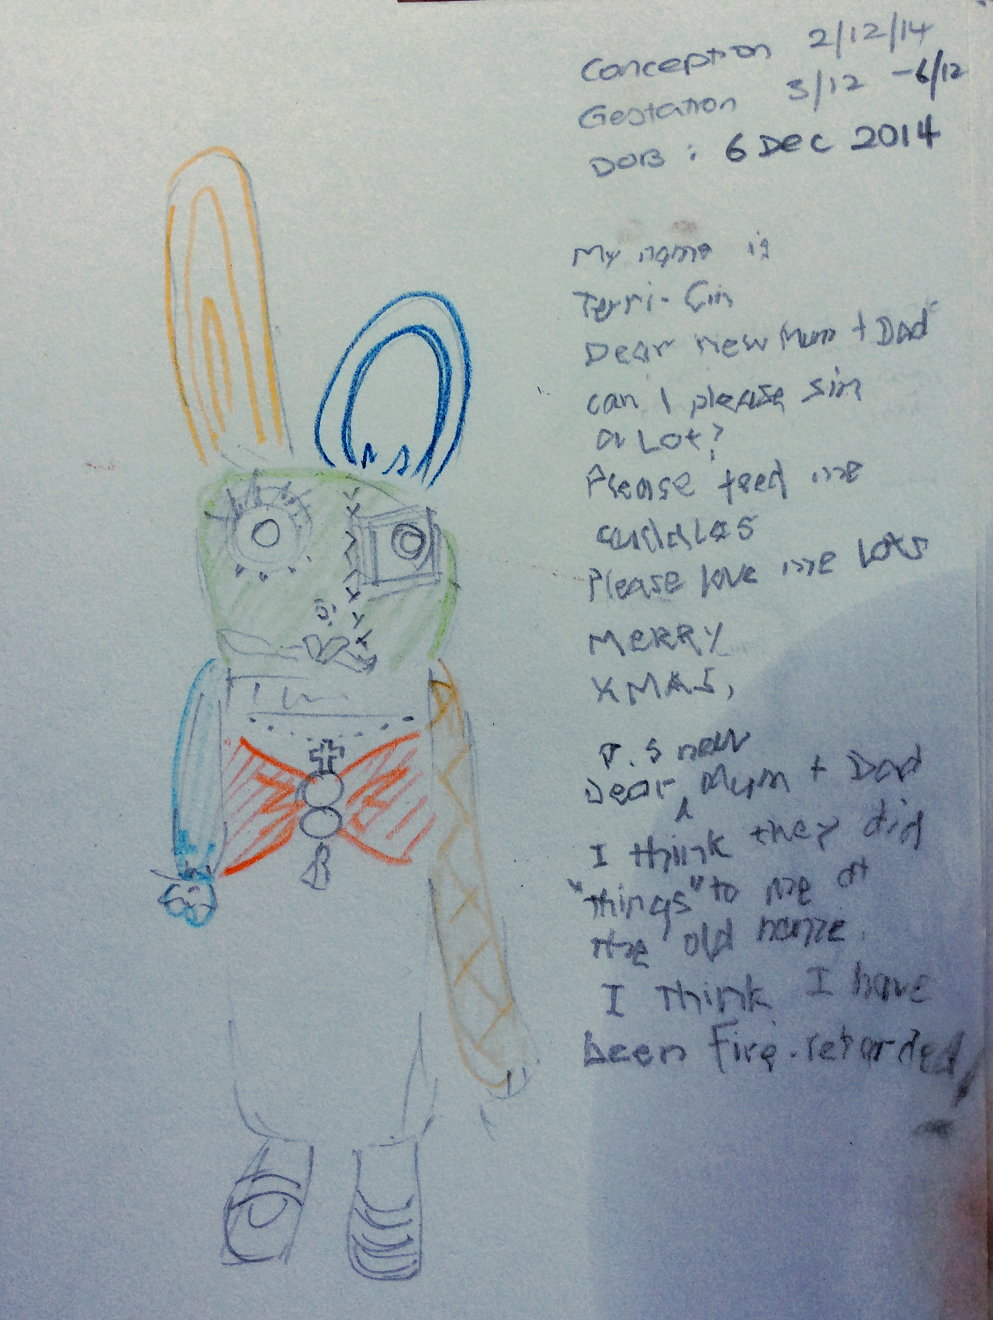 Conception 2/12/14
Gestation 3/12 - 6/12
DOB : 6 Dec 2014
My name is
Terri-Cin
Dear new Mum + Dad
can I please sin
a Lot?
Please feed me
cuddles
Please love me Lots
MERRY
XMAS,
P.S new
Dear Mum + Dad
I think they did
"things" to me at
the old home.
I think I have
been Fire-retarded/